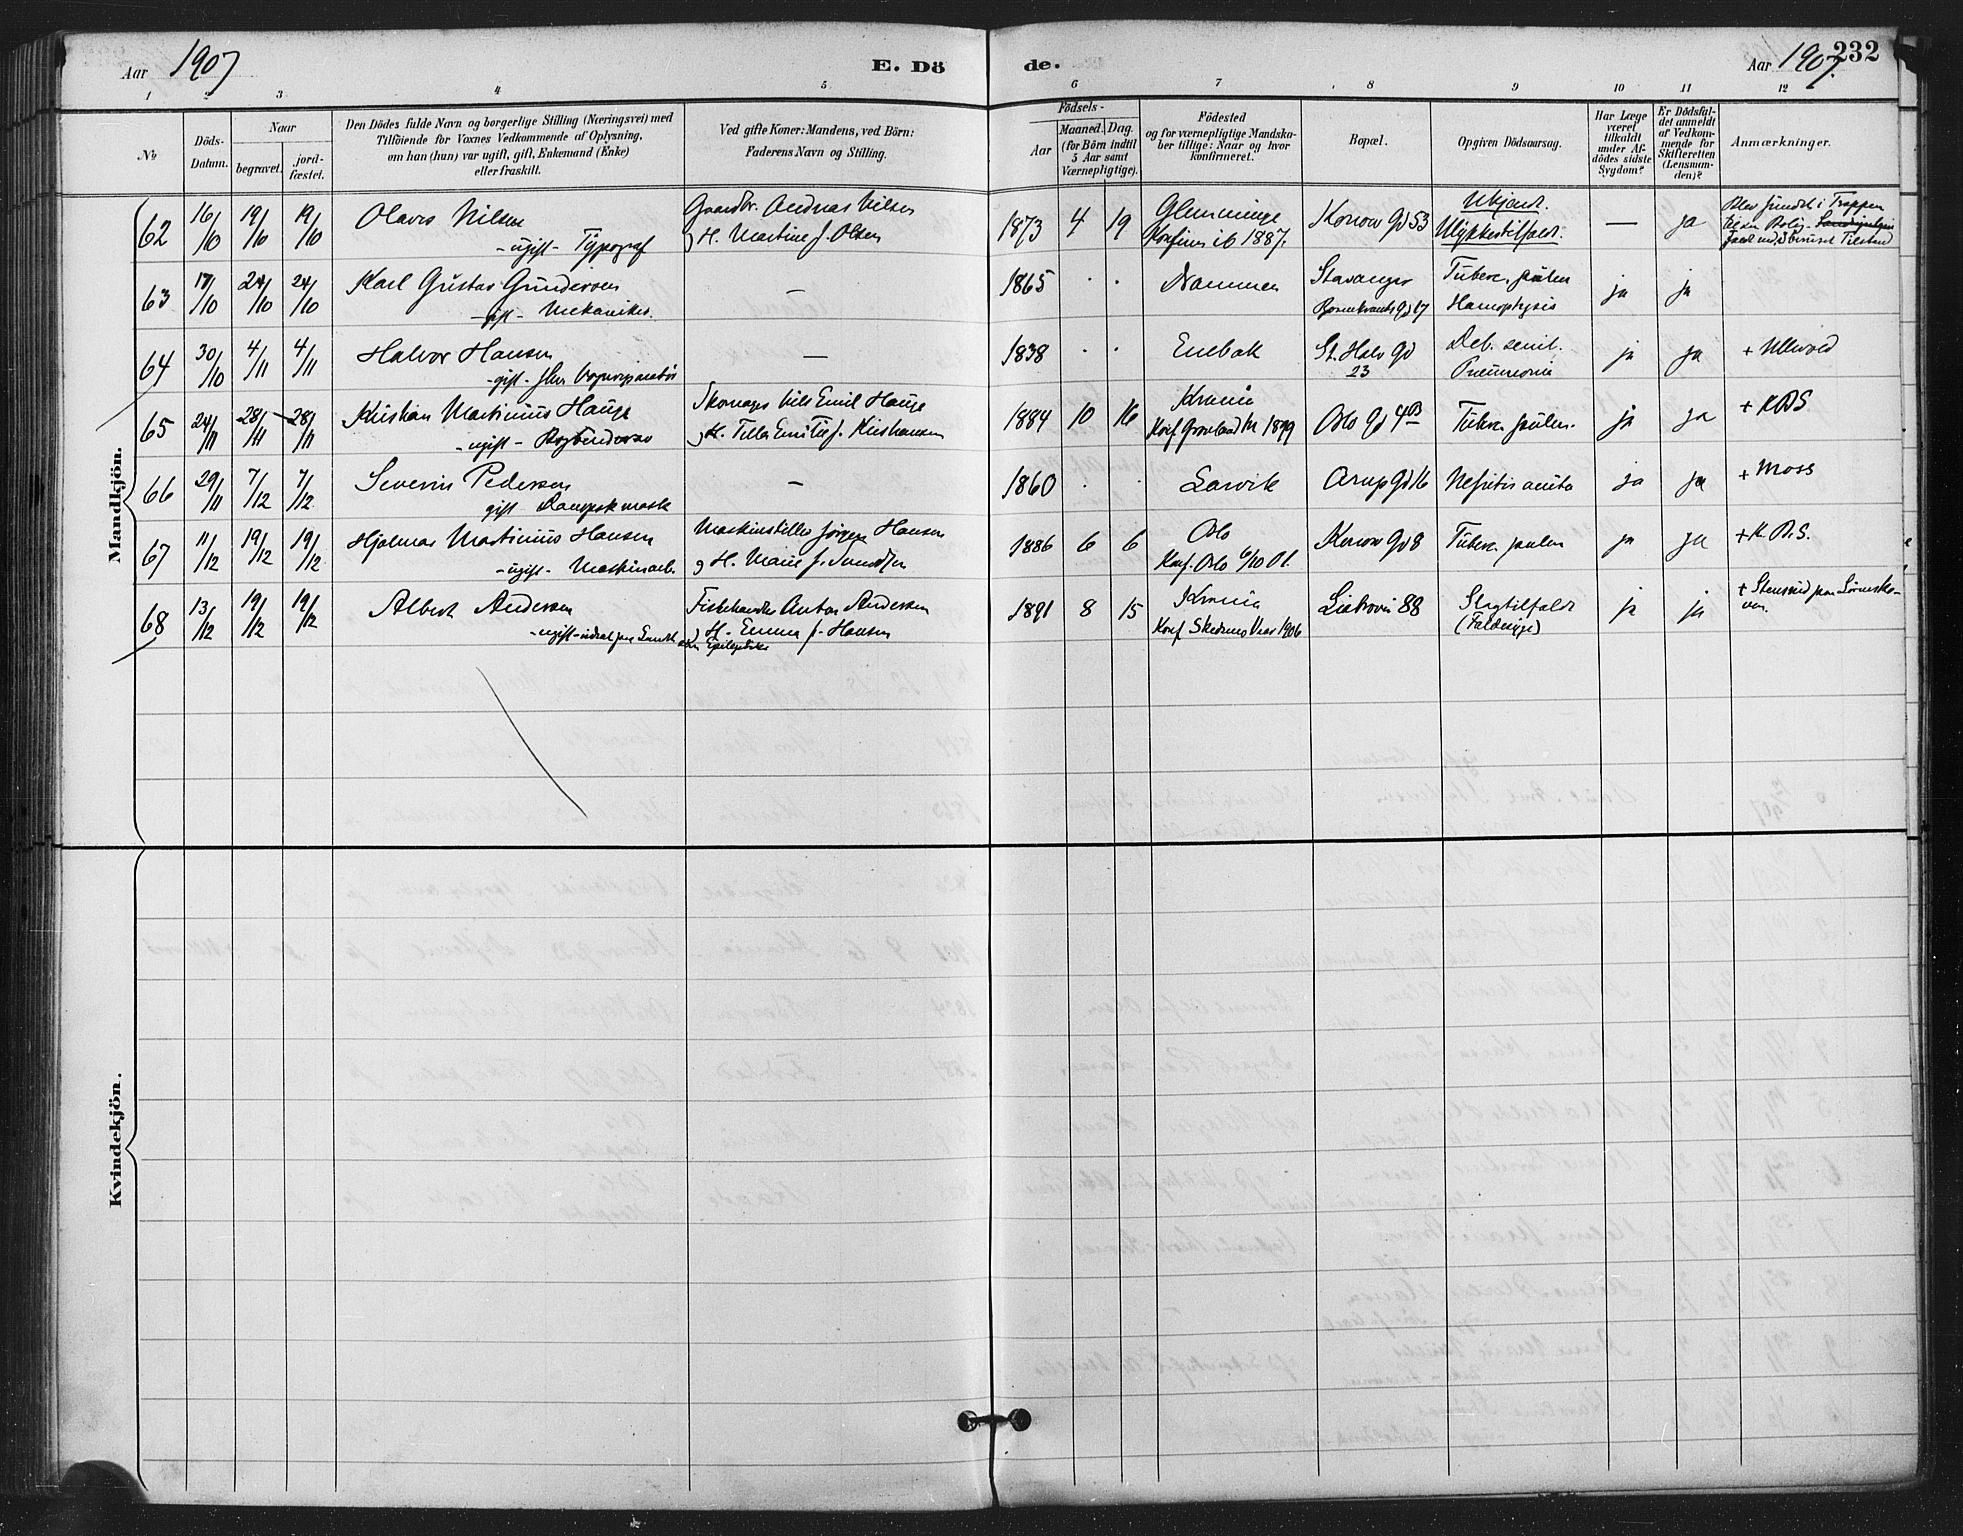 Aar 1907
E. Döde.
Aar 1907.
232
1 2 3 4 5 6 7 8 9 10 11 12
No
Döds-
Datum.
Naar
begravet.
jord-
fæstet.
Den Dödes fulde Navn og borgerlige Stilling (Næringsvei) med
Tilföiende for Voxnes Vedkommende af Oplysning,
om han (hun) var ugift, gift, Enkemand (Enke)
eller fraskilt.
Ved gifte Koner: Mandens, ved Börn:
Faderens Navn og Stilling.
Födsels-
Aar
Maaned. Dag.
(for Börn indtil
5 Aar samt
Værnepligtige).
Födested
og for værnepligtige Mandska-
ber tillige: Naar og hvor
konfirmeret.
Bopæl.
Opgiven Dödsaarsag.
Har Læge
været
tilkaldt
under Af-
dödes sidste
Sygdom?
Er Dödsfal-
det anmeldt
af Vedkom-
mende for
Skifteretten
(Lensman-
den)?
Anmærkninger.
Mandkjön.
62 16/10 19/10 19/10 Olavs Nilsen
-ugift- Typograf
Gaardbr. Andreas Nilsen
og H. Martine f. Olsen
1873 4 19 Glemminge
1887.
Konow Gd 53
Ubekjendt.
Ulykkestilfælde.
— ja
Blev fundet i Trappen
63 17/10 24/10 24/10 Karl Gustav Gundersen
-gift- Mekaniker.
—
1865 . . Drammen
Stavanger
Rosenkrantz Gd 17
Tuberc. pulm
Hæmoptysis
ja ja
64 30/10 4/11 4/11 Halvor Hansen
-gift-
—
1838 . . Enebak
St. Halv Gd
23
Deb. senil.
Pneumonia
ja ja + Ullevold
65 24/11 28/11 28/11 Kristian Martinius Hauge
-ugift- Bogbindersv
Skomager Nils Emil Hauge
1884 10 16 Krania
Konf Grønland 1899
Oslo Gd 4B
Tuberc. pulm.
ja ja + KBS
66 29/11 7/12 7/12 Severin Pedersen
gift-
—
1860 . . Larvik
Arup Gd 16
Nefritis acuta
ja ja + Moss
67 11/12 19/12 19/12 Hjalmar Martinius Hansen
-ugift- Maskinarb.
Jørgen Hansen
og H. Marie f.
1886 6 6 Oslo
Konf. Oslo 6/10 01.
Konow Gd 8
Tuberc. pulm
ja ja + K.B.S.
68 13/12 19/12 19/12 Albert Andersen
-ugift-
Fiskehandler Anton Andersen
og H. Emma f. Hansen
1891 8 15 Krania
Konf 1906
88
Slagtilfælde
(Faldesyge)
ja ja
Kvindekjön.